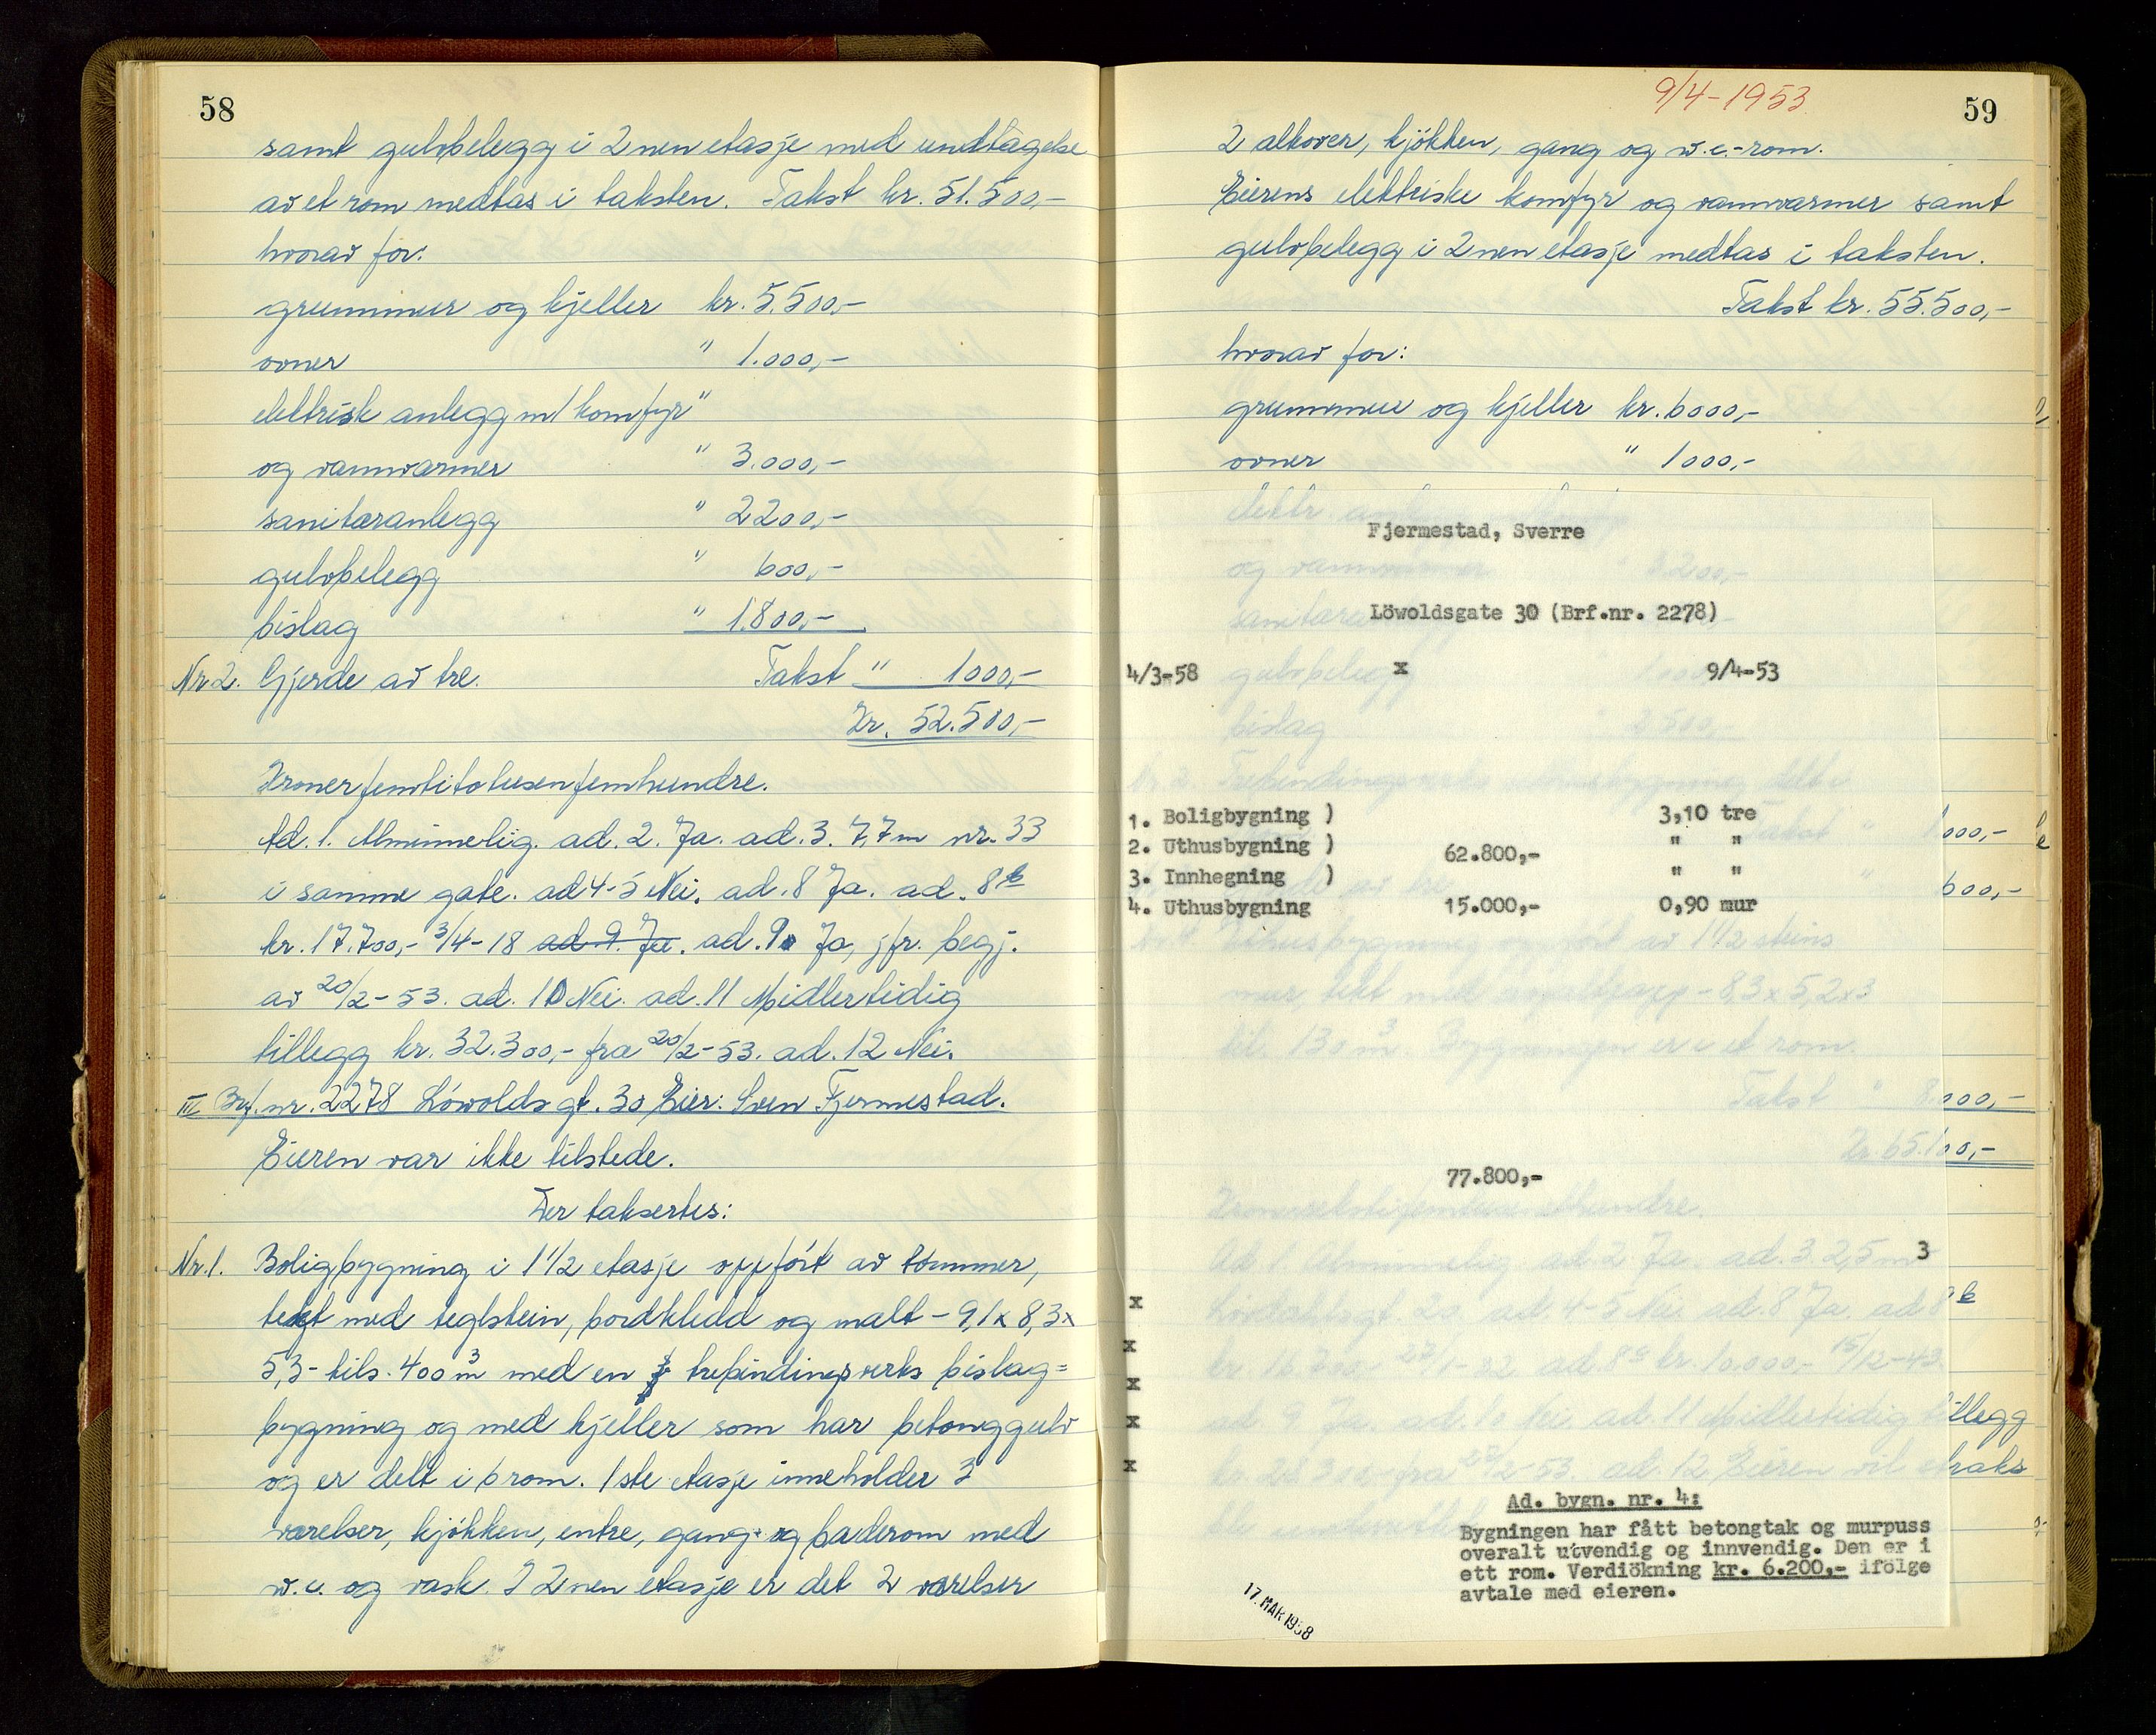 58
samt gulvbelegg i 2nen etasje med undtagelse
av et rom medtas i taksten. Takst kr. 51.500,-
hvorav for:
grunnmur og kjeller kr. 5.500,-
ovner " 1.000,-
elektrisk anlegg m/ komfyr "
og vannvarmer " 3.000,-
sanitæranlegg " 2200,-
gulvbelegg " 600,-
bislag " 1.800,-
Nr 2. Gjerde av tre. Takst " 1000,-
Kr. 52.500,-
Kroner femtitotusenfemhundre.
Ad. 1. Alminnelig. ad. 2. Ja. ad. 3. 7,7m nr. 33
i samme gate. ad 4-5 Nei. ad. 8 Ja. ad. 8b
kr. 17.700,- 3/4-18 ad 9. Ja. ad. 9a Ja, jfr. begj.
av 20/2-53. ad. 10 Nei. ad. 11 Midlertidig
tillegg kr. 32.300,- fra 20/2-53. ad. 12 Nei.
III Brf. nr. 2278 Löwolds gt. 30 Eier: Sven Fjermestad.
Eieren var ikke tilstede.
Der taksertes:
Nr. 1. Boligbygning i 1 1/2 etasje oppført av tømmer,
tekt med teglstein, bordkledd og malt - 9,1 x 8,3 x
5,3 - tils. 400 m3 med en trebindingsverks bislag=
bygning og med kjeller som har betonggulv
og er delt i 6 rom. 1ste etasje inneholder 3
værelser, kjøkken, entre, gang og baderom med
w.c. og vask. I 2nen etasje er det 2 værelser
9/4-1953
59
2 alkover, kjökken, gang og w.c.-rom.
Eierens elektriske komfyr og vannvarmer samt
gulvbelegg i 2nen etasje medtas i taksten.
Takst kr. 55.500,-
hvorav for:
grunnmur og kjeller kr. 6000,-
ovner " 1000,-
Fjermestad, Sverre
Löwoldsgate 30 (Brf.nr. 2278)
4/3-58 x 9/4-53
1. Boligbygning ) 3,10 tre
2. Uthusbygning ) 62.800,- " "
3. Innhegning ) " "
4. Uthusbygning 15.000,- 0,90 mur
77.800,-
3
x
x
x
x
x
Ad. bygn. nr. 4:
Bygningen har fått betongtak og murpuss
overalt utvendig og innvendig. Den er i
ett rom. Verdiökning kr. 6.200,- ifölge
avtale med eieren.
17. MAR 1958